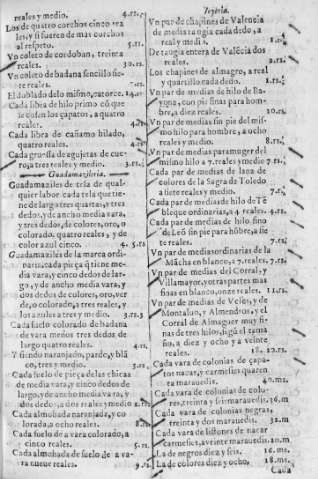 reales y medio. 4.rs.
Los de quatro corchos cinco rea
les, y si fueren de mas corchos
al respeto. 5.rs.
Vn coleto de cordoban, treinta
reales. 30.rs.
Vn coleto de badana senzillo sie-
te reales. 7.rs.
El doblado de lo mismo, catorce. 14.rs
Cada libra de hilo primo có que
se cosen los çapatos, a quatro
reales. 4.rs.
Cada libra de cañamo hilado,
quatro reales. 4.rs.
Cada gruessa de agujetas de cue-
ro, a tres reales y medio. 3.rs.
Guadamazileria.
Guadamaziles de tela de qual-
quier labor cada tela que tie-
ne de largo tres quartas, y tres
dedos, y de ancho media vara,
y tres dedos, de colores, oro, o
colorado, quatro reales, y de
color azul cinco. 4. 5.rs
Guadamaziles de la marca ordi-
naria, cada pieça q̃ tiene me-
dia vara, y cinco dedos de lar-
go, y de ancho media vara, y
dos dedos de colores, oro, ver
de, o colorado, a tres reales, y
los azules a tres y medio. 3.rs.
Cada faeto colorado de badana
de vara menos tres dedos de
largo quatro reales. 4.rs.
Y siendo naranjado, pardo, y blā
co, tres y medio. 3.rs.
Cada suelo de pieça de las chicas
de media vara, y cinco dedos de
largo, y de ancho media vara, y
dos dedos, a dos reales y medio 2.rs
Cada almohada naranjada, y co
lorada, a ocho reales. 8.rs
Cada suelo de a vara colorado, a
cinco reales. 5.rs
Cada almohada de suelo de a va-
ra nueue reales. 9.rs
Texeria.
Vn par de chapines de Valencia
de media taugia cada dedo, a
real y medio. 1.rs.
De taugia entera de Valēcia dos
reales. 2.rs.
Los chapines de almagro, a real
y quartillo cada dedo. 1.rs.
Vn par de medias de hilo de Ba
yona, con pie finas para hom-
bre, a diez reales. 10.rs.
Vn par de medias sin pie del mis-
mo hilo para hombre, a ocho
reales y medio. 8.rs.
Vn par de medias para muger del
mismo hilo a 7. reales y medio 7.rs.
Cada par de medias de lana de
colores de la Sagra de Toledo
a siete reales y medio. 7.rs.
Cada par de medias de hilo de Tē
bleque ordinarias, a 4. reales. 4.rs.
Cada par de medias de hilo fino
de Leō sin pie para hōbre, a sie
te reales. 7.rs.
Vn par de medias ordinarias de la
Mācha en blanco, a 7. reales. 7.rs
Vn par de medias del Corral, y
Villamayor, y otras partes mas
finas en blanco, onze reales. 11.rs
Vn par de medias de Velos, y de
Montaluo, y Almendros, y el
Corral de Almaguer muy fi-
nas de tres hilos, sigũ el tama
ño, a diez y ocho y a veinte
reales. 18. 20.rs.
Cada vara de colonias de çapa-
tos nacar, y carmesies quaren
ta marauedis. 40.ms.
Cada vara de colonias de colo-
res, treinta y seis marauedis. 36.m
Cada vara de colonias negras,
treinta y dos marauedis. 32.m
Cada vara de listones de nacar
carmesies, a veinte marauedis. 20.m
La de negros diez y seis. 16.ms.
La de colores diez y ocho. 18.ms.
Cada